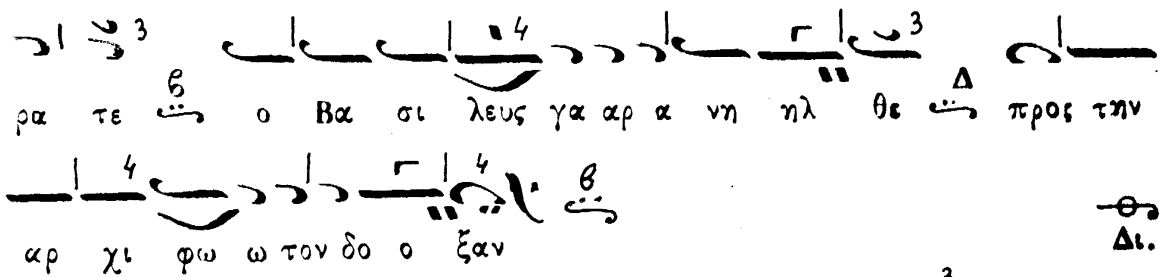 ρα τε β ο Βα σι λευς γα αρ α νη ηλ θε Δ προς την
αρ χι φω ω τον δο ο ξαν β Δι.